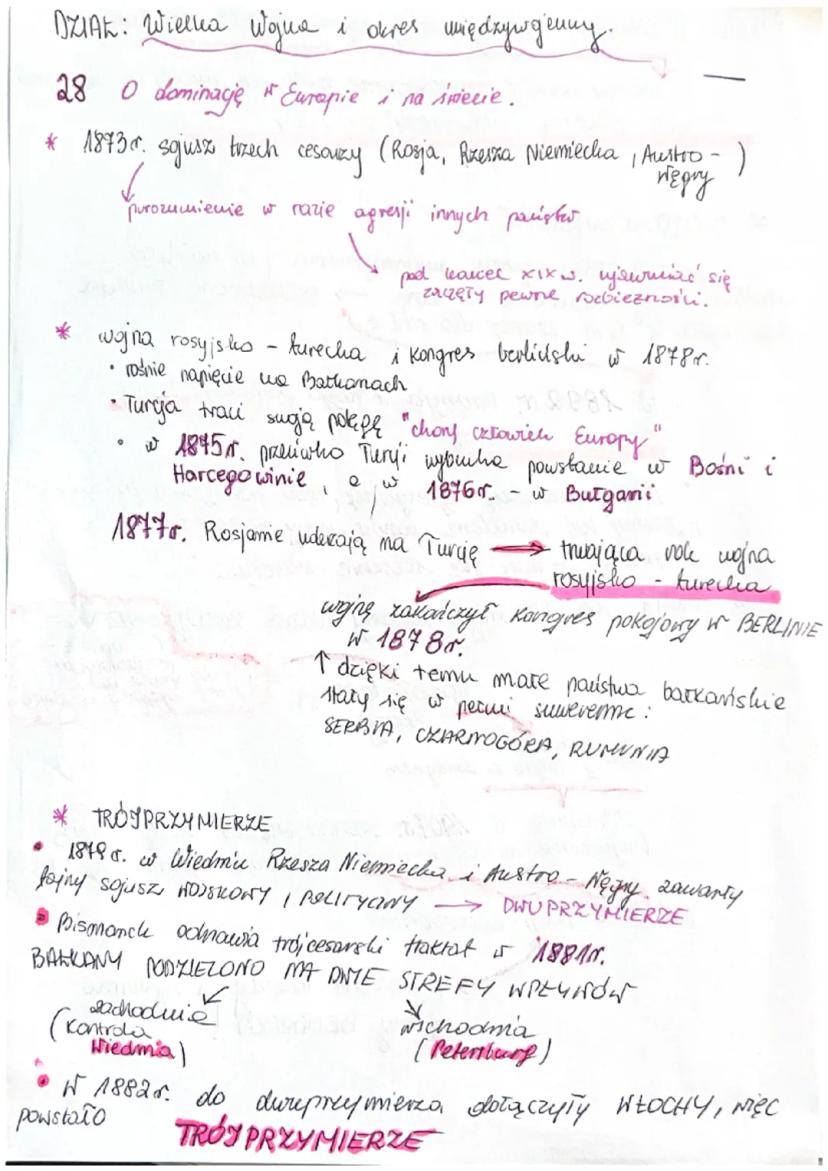 DZIAŁ: Wielka Wojna i okres międzywojenny.
28 O dominację w Europie i na świecie.
* 1873r. sojusz trzech cesarzy (Rosja, Rzesza Niemiecka, Austro-
Węgry)
porozumienie w razie agresji innych państw
pod koniec XIX w. ujawniać się
zaczęły pewne rozbieżności.
* wojna rosyjsko - turecka i kongres berliński w 1878r.
• rośnie napięcie na Bałkanach
• Turcja traci swoją potęgę "chory człowiek Europy"
• w 1875r. przeciwko Turcji wybucha powstanie w Bośni i
Harcegowinie, a w 1876r. - w Bułgarii
1877r. Rosjanie uderzają na Turcję → trwająca rok wojna
rosyjsko - turecka
wojnę zakończył kongres pokojowy w BERLINIE
w 1878r.
↑ dzięki temu małe państwa bałkańskie
stały się w pełni suwerenne:
SERBIA, CZARNOGÓRA, RUMUNIA
* TRÓJPRZYMIERZE
• 1879r. w Wiedniu Rzesza Niemiecka i Austro-Węgry zawarły
tajny sojusz WOJSKOWY I POLITYCZNY → DWUPRZYMIERZE
• Bismarck odnawia trójcesarski traktat w 1881r.
BAŁKANY PODZIELONO NA DWIE STREFY WPŁYWÓW
zachodnie wschodnia
(kontrola (Petersburg)
Wiednia)
• W 1882r. do dwuprzymierza dołączyły WŁOCHY, więc
powstało
TRÓJPRZYMIERZE